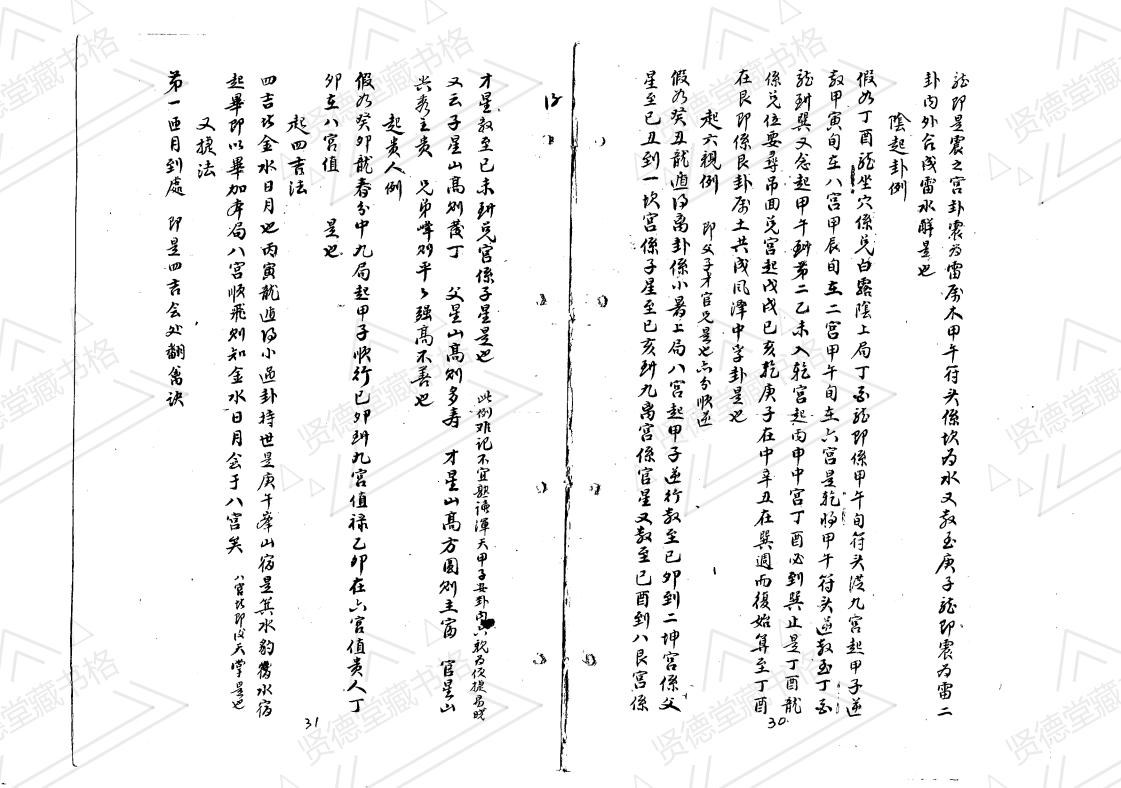 龍即是震之宫卦震为雷属木甲午符头係坎为水又数至庚子龍即震为雷二
卦内外合成雷水解是也
陰起卦例
假如丁酉龍坐穴係兑白露陰上局丁酉龍即係甲午旬符头從九宫起甲子逆
数甲寅旬在八宫甲辰旬在二宫甲午旬在六宫是乾将甲午符头逆数至丁酉
龍到巽又念起甲午到第二乙未入乾宫起丙申中宫丁酉必到巽止是丁酉龍
係兑位要尋吊面兑宫起戊戌已亥乾庚子在中辛丑在巽週而復始算至丁酉
在艮即係艮卦属土共成风泽中孚卦是也
起六親例 即父子才官兄是也六分順逆
假如癸丑龍遁得离卦係小暑上局八宫起甲子逆行数至已卯到二坤宫係父
星至已丑到一坎宫係子星至已亥到九离宫係官星又数至已酉到八艮宫係
30
才星数至已未到兑宫係子星是也 此例难记不宜熟诵渾天甲子安卦内六親为便捷易晓
又云子星山高则發丁 父星山高则多寿 才星山高方圆则主富 官星山
兴秀主贵 兄弟峰则平々强高不善也
起贵人例
假如癸卯龍春分中九局起甲子順行已卯到九宫值禄乙卯在六宫值贵人丁
卯在八宫值 是也
起四吉法
四吉皆金水日月也丙寅龍遁得小过卦持世是庚午峯山宿是箕水豹属水宿
起畢即以畢加本局八宫順飛则知金水日月会于八宫矣 八宫皆即後天掌是也
又捷法
第一酉月到處 即是四吉会处翻禽诀
31
贤德堂藏书格